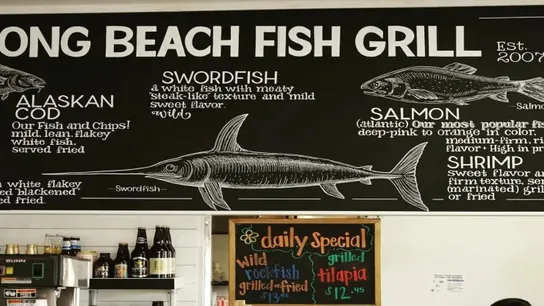 ONG BEACH FISH GRILL
Est.
2007
SWORDFISH
a white fish with meaty
steak-like texture and mild
sweet flavor.
wild
ALASKAN
COD
Our Fish and Chips!
mild, lean, flakey
white fish.
served fried
SALMON
(atlantic) Our most popular fis
deep-pink to orange in color.
medium-firm, ri
flavor • High in pr
Salmon
SHRIMP
sweet flavor an
firm texture. ser
(marinated) gril
or fried
Swordfish
white flakey
ed blackened
ed fried.
daily Special
wild
rockfish
grilled or fried
$13.
grilled
tilapia
$12.45
BUNN